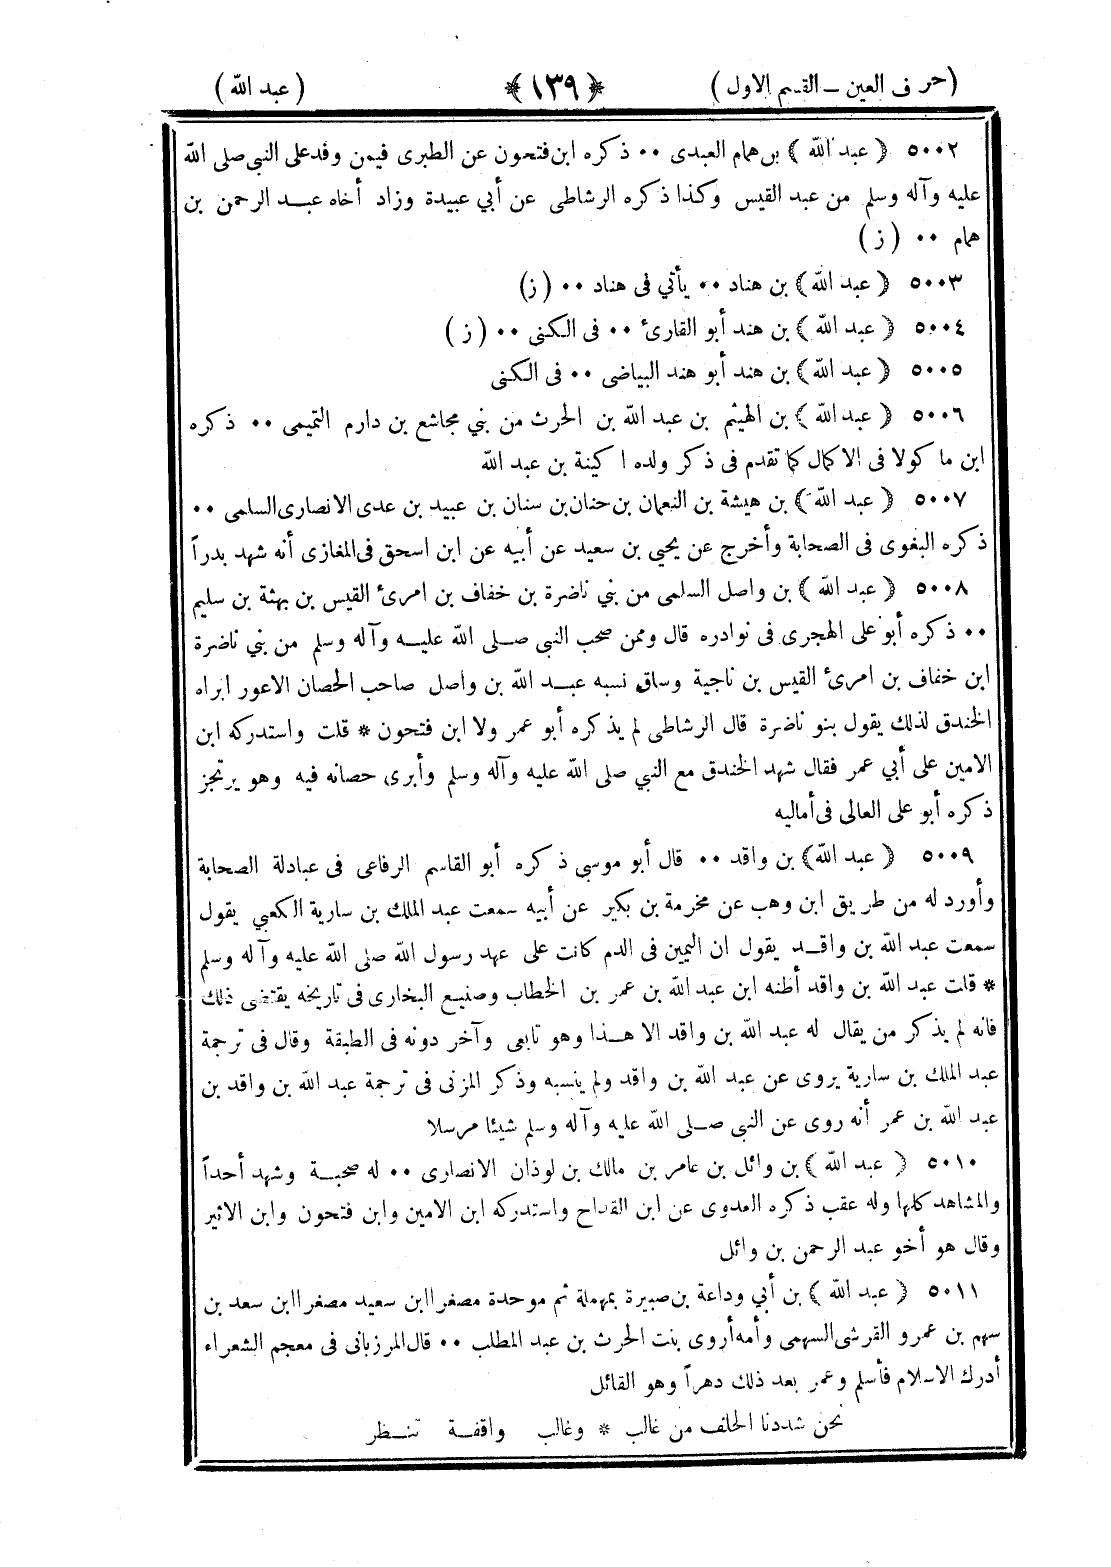 (حرف العين ــ القسم الاول) ﴿ ١٣٩ ﴾ (عبد الله)
٥٠٠٢ ﴿ عبد الله ﴾ بن همام العبدى ٠٠ ذكره ابن فتحون عن الطبرى فيمن وفد على النبى صلى الله
عليه وآله وسلم من عبد القيس وكذا ذكره الرشاطى عن أبي عبيدة وزاد أخاه عبد الرحمن بن
همام ٠٠ (ز)
٥٠٠٣ ﴿ عبد الله ﴾ بن هناد ٠٠ يأتي فى هناد ٠٠ (ز)
٥٠٠٤ ﴿ عبد الله ﴾ بن هند أبو القارئ ٠٠ فى الكنى ٠٠ (ز)
٥٠٠٥ ﴿ عبد الله ﴾ بن هند أبو هند البياضى ٠٠ فى الكنى
٥٠٠٦ ﴿ عبد الله ﴾ بن الهيثم بن عبد الله بن الحرث من بني مجاشع بن دارم التميمى ٠٠ ذكره
ابن ماكولا فى الاكمال كما تقدم فى ذكر ولده اكينة بن عبد الله
٥٠٠٧ ﴿ عبد الله ﴾ بن هيشة بن النعمان بن حنان بن سنان بن عبيد بن عدى الانصارى السلمى ٠٠
ذكره البغوى فى الصحابة وأخرج عن يحيى بن سعيد عن أبيه عن ابن اسحق فى المغازى أنه شهد بدراً
٥٠٠٨ ﴿ عبد الله ﴾ بن واصل السلمى من بني ناضرة بن خفاف بن امرئ القيس بن بهثة بن سليم
٠٠ ذكره أبو على الهجرى فى نوادره قال وممن صحب النبى صلى الله عليه وآله وسلم من بني ناضرة
ابن خفاف بن امرئ القيس بن ناجية وساق نسبه عبد الله بن واصل صاحب الحصان الاعور ابراه
الخندق لذلك يقول بنو ناضرة قال الرشاطى لم يذكره أبو عمر ولا ابن فتحون * قلت واستدركه ابن
الامين على أبي عمر فقال شهد الخندق مع النبي صلى الله عليه وآله وسلم وأبرى حصانه فيه وهو يرتجز
ذكره أبو على العالى فى أماليه
٥٠٠٩ ﴿ عبد الله ﴾ بن واقد ٠٠ قال أبو موسى ذكره أبو القاسم الرفاعى فى عبادلة الصحابة
وأورد له من طريق ابن وهب عن مخرمة بن بكير عن أبيه سمعت عبد الملك بن سارية الكعبي يقول
سمعت عبد الله بن واقد يقول ان اليمين فى الدم كانت على عهد رسول الله صلى الله عليه وآله وسلم
* قلت عبد الله بن واقد أظنه ابن عبد الله بن عمر بن الخطاب وصنيع البخارى فى تاريخه يقتضى ذلك
فانه لم يذكر من يقال له عبد الله بن واقد الا هذا وهو تابعى وآخر دونه فى الطبقة وقال فى ترجمة
عبد الملك بن سارية يروى عن عبد الله بن واقد ولم ينسبه وذكر المزنى فى ترجمة عبد الله بن واقد بن
عبد الله بن عمر أنه روى عن النبى صلى الله عليه وآله وسلم شيئا مرسلا
٥٠١٠ ﴿ عبد الله ﴾ بن وائل بن عامر بن مالك بن لوذان الانصارى ٠٠ له صحبة وشهد أحداً
والمشاهد كلها وله عقب ذكره العدوى عن ابن القداح واستدركه ابن الامين وابن فتحون وابن الاثير
وقال هو أخو عبد الرحمن بن وائل
٥٠١١ ﴿ عبد الله ﴾ بن أبي وداعة بن صبيرة بمهملة ثم موحدة مصغرا ابن سعيد مصغرا ابن سعد بن
سهم بن عمرو القرشى السهمى وأمه أروى بنت الحرث بن عبد المطلب ٠٠ قال المرزبانى فى معجم الشعراء
أدرك الاسلام فأسلم وعمر بعد ذلك دهراً وهو القائل
نحن شددنا الحلف من غالب * وغالب واقفة تنظر